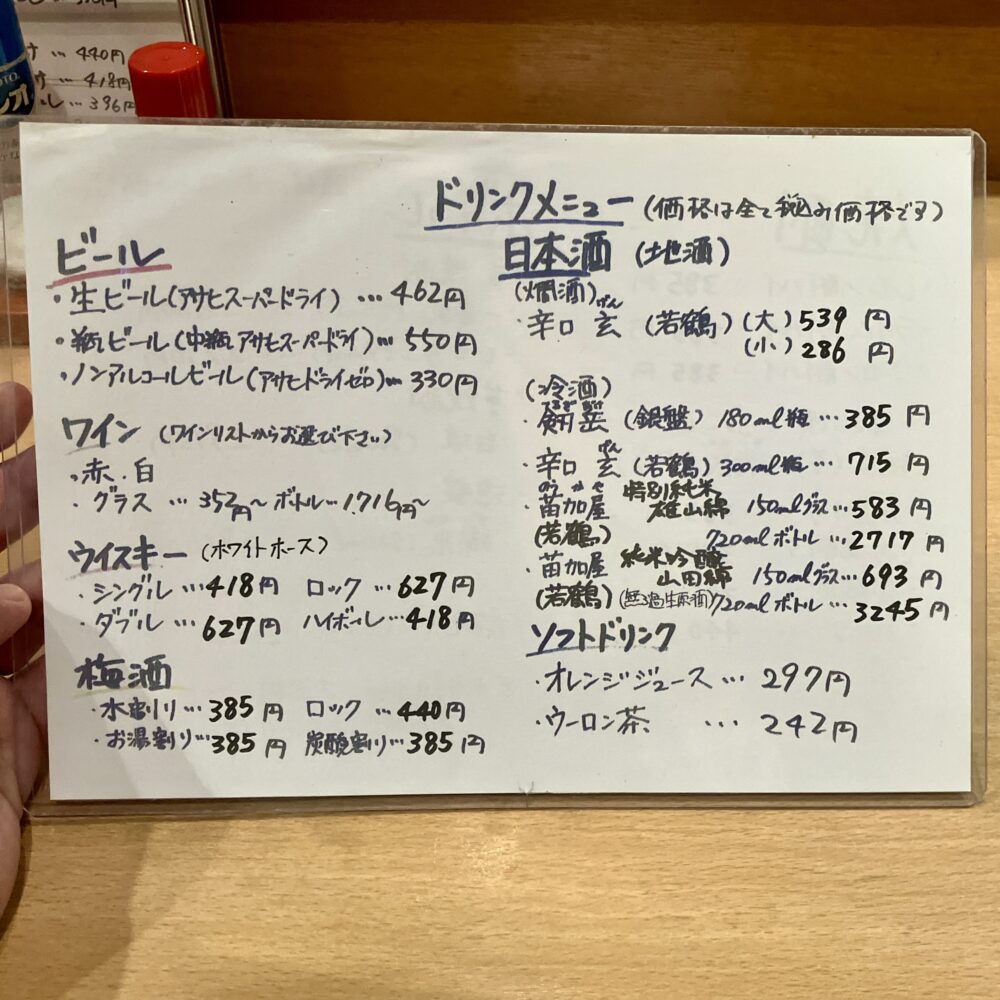 … 440円
… 418円
ル … 396円
ドリンクメニュー (価格は全て税込み価格です)
ビール
・生ビール(アサヒスーパードライ) … 462円
・瓶ビール(中瓶アサヒスーパードライ)… 550円
・ノンアルコールビール(アサヒドライゼロ)… 330円
ワイン (ワインリストからお選び下さい)
・赤・白
・グラス … 352円〜 ボトル… 1,716円〜
ウイスキー (ホワイトホース)
・シングル …418円 ロック …627円
・ダブル … 627円 ハイボール …418円
梅酒
・水割り…385円 ロック …440円
・お湯割り…385円 炭酸割り…385円
日本酒 (地酒)
(燗酒)
げん
・辛口 玄 (若鶴) (大) 539 円
(小) 286 円
(冷酒)
つるぎだけ
・剱岳 (銀盤) 180ml瓶 …385 円
げん
・辛口 玄 (若鶴) 300ml瓶 … 715 円
のうかや
・苗加屋 特別純米 雄山錦 150mlグラス …583 円
(若鶴) 720ml ボトル …2717 円
・苗加屋 純米吟醸 山田錦 150mlグラス …693 円
(若鶴) (無ろ過生原酒) 720ml ボトル … 3245円
ソフトドリンク
・オレンジジュース … 297円
・ウーロン茶 … 242円